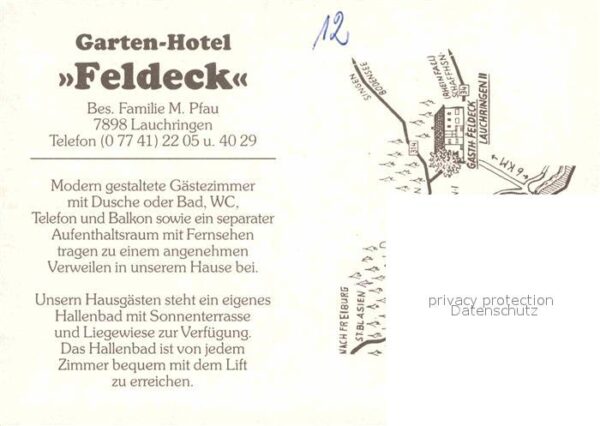 Garten-Hotel
»Feldeck«
Bes. Familie M. Pfau
7898 Lauchringen
Telefon (0 77 41) 22 05 u. 40 29
Modern gestaltete Gästezimmer
mit Dusche oder Bad, WC,
Telefon und Balkon sowie ein separater
Aufenthaltsraum mit Fernsehen
tragen zu einem angenehmen
Verweilen in unserem Hause bei.
Unsern Hausgästen steht ein eigenes
Hallenbad mit Sonnenterrasse
und Liegewiese zur Verfügung.
Das Hallenbad ist von jedem
Zimmer bequem mit dem Lift
zu erreichen.
12
SINGEN
BODENSEE
(RHEINFALL)
SCHAFFHSN.
34
314
GASTH. FELDECK
LAUCHRINGEN II
6 KM
NACH FREIBURG
ST. BLASIEN
privacy protection
Datenschutz